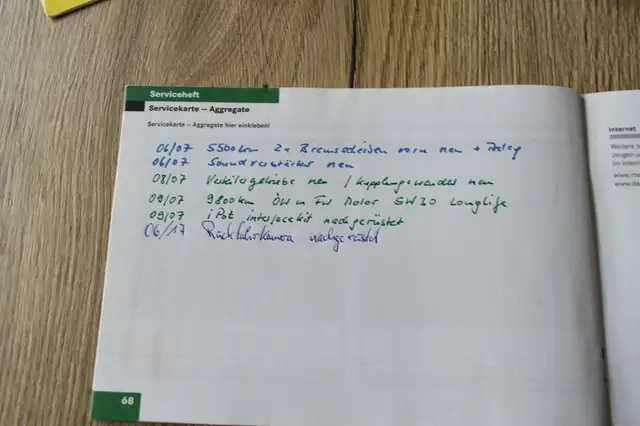 Serviceheft
Servicekarte – Aggregate
Servicekarte – Aggregate hier einkleben!
06/07 5500km 2x Bremsscheiben vorn neu +
06/07 Soundverstärker neu
08/07 Verteilergetriebe neu / Kupplungswandler neu
09/07 9800km Öl u Motor 5W30 Longlife
09/07 iPot interfacekit nachgerüstet
06/17 Rückfahrkamera nachgerüstet
68
Internet
Weitere
zeugen
im Intern
www.me
www.da